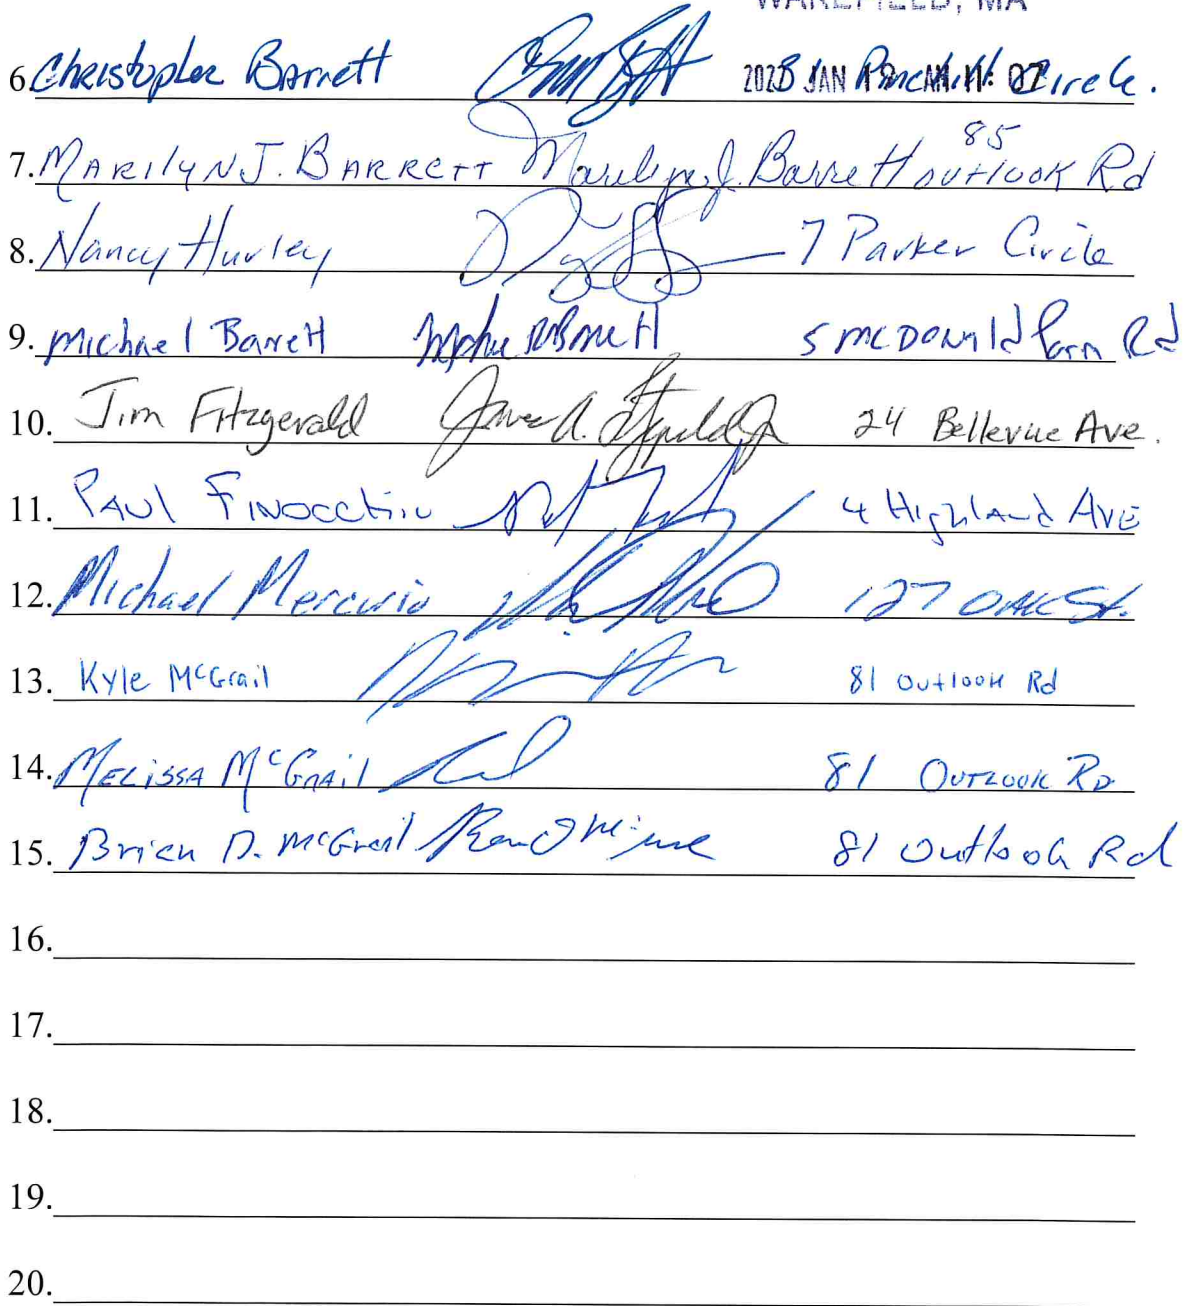 WAKEFIELD, MA
6. Christopher Barrett 2023 JAN AM 11: 07 Circle.
7. MARILYN J. BARRETT Marilyn J. Barrett 85 OUTLOOK Rd
8. Nancy Hurley 7 Parker Circle
9. Michael Barrett 5 McDonald Farm Rd
10. Jim Fitzgerald 24 Bellevue Ave.
11. PAUL FINOCCHIO 4 Highland AVE
12. Michael Mercurio 127 OAK St.
13. Kyle McGrail 81 Outlook Rd
14. MELISSA McGRAIL 81 OUTLOOK RD
15. Brian D. McGrail 81 Outlook Rd
16.
17.
18.
19.
20.